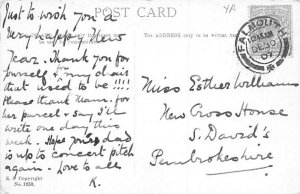 Just to wish you a
very happy New
Year. Thank you for
yourself & my dair
that used to be !!!!
Please thank team. for
her parcel & say I'll
write one day this
week. Hope you're dad
is up to concert pitch
again. Love to all
K.
POST CARD
The ADDRESS only to be written here
FALMOUTH
DE 30
07
Miss Esther Williams
New Cross House
S. David's
Pembrokeshire
Copyright
No. 1253.
YA